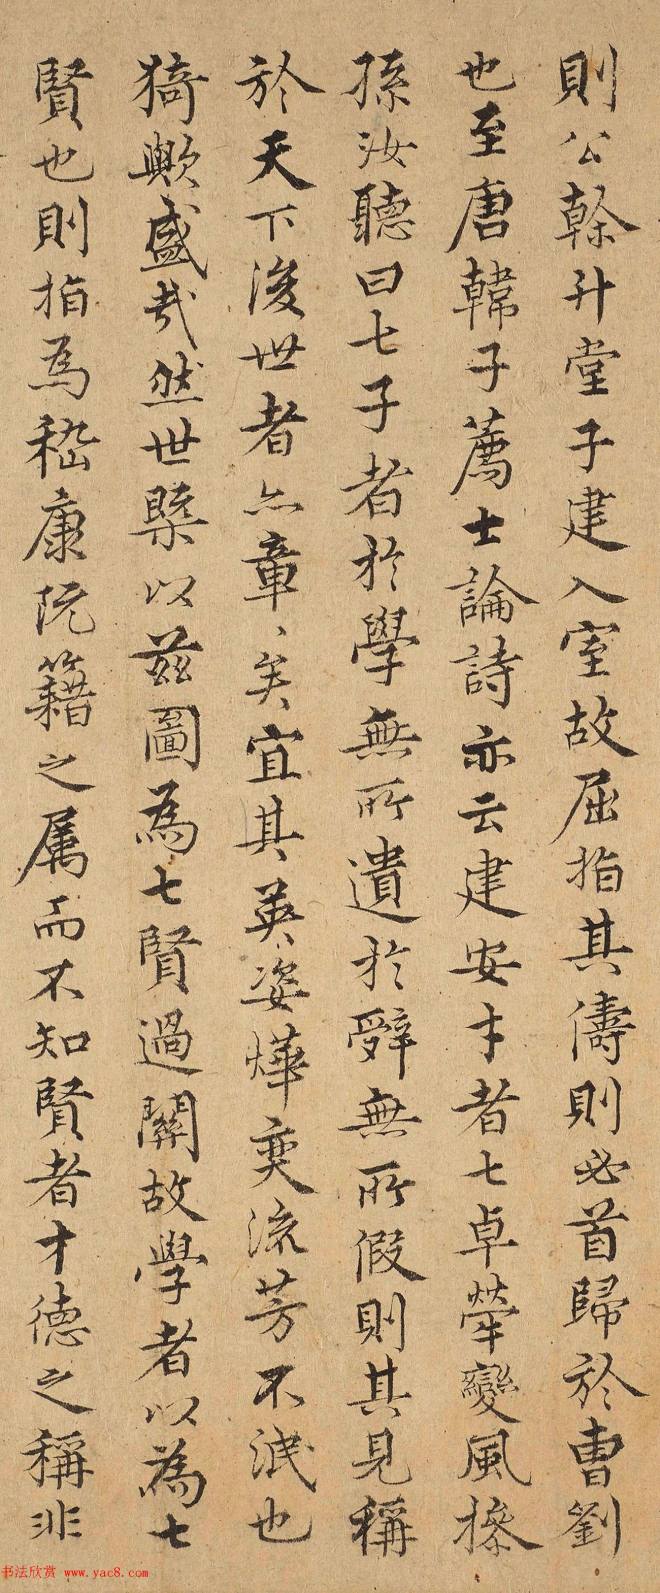 則公幹升堂子建入室故屈指其儔則必首歸於曹劉
也至唐韓子薦士論詩亦云建安才者七卓犖變風操
孫汝聽曰七子者於學無所遺於辭無所假則其見稱
於天下後世者亦章〻矣宜其英姿燁奕流芳不泯也
猗歟盛哉然世槩以茲圖為七賢過關故學者以為七
賢也則指為嵇康阮籍之属而不知賢者才德之稱非
书法欣赏 www.yac8.com